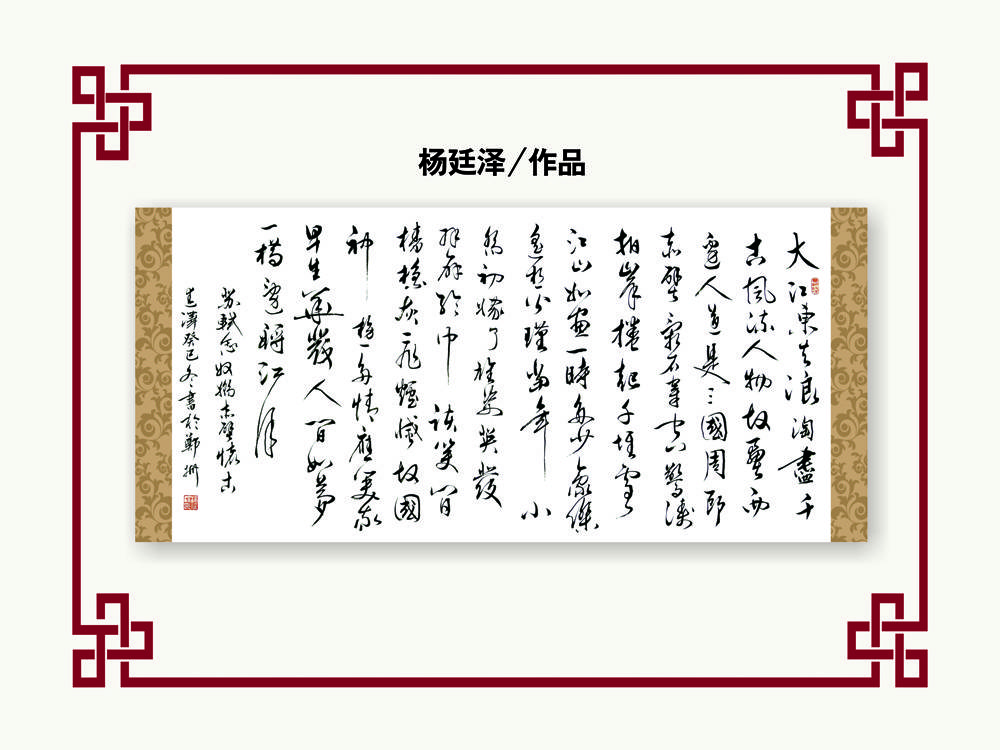 杨廷泽/作品
大江東去浪淘盡千
古風流人物故壘西
邊人道是三國周郎
赤壁亂石穿空驚濤
拍岸捲起千堆雪
江山如畫一時多少豪傑
遙想公瑾當年小
喬初嫁了雄姿英發
羽扇綸巾談笑間
檣櫓灰飛煙滅故國
神遊多情應笑我
早生華髮人間如夢
一樽還酹江月
蘇軾念奴嬌赤壁懷古
廷澤癸巳冬書於鄭州